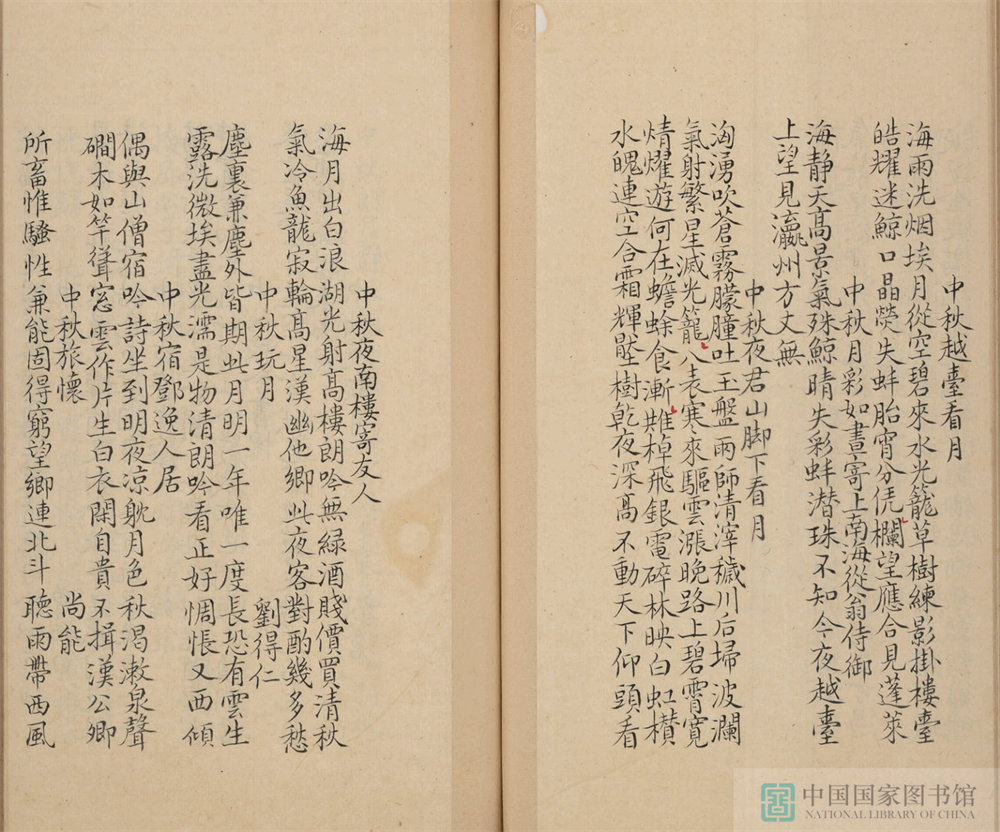 中秋越臺看月
海雨洗烟埃月從空碧來水光籠草樹練影掛樓臺
皓耀迷鯨口晶熒失蚌胎宵分凭欄望應合見蓬萊
中秋月彩如晝寄上南海從翁侍御
海静天髙景氣殊鯨睛失彩蚌潜珠不知今夜越臺
上望見瀛州方丈無
中秋夜君山脚下看月
洶湧吹蒼霧朦朣吐玉盤雨師清滓穢川后埽波瀾
氣射繁星滅光籠八表寒來驅雲漲晚路上碧霄寛
熌燿遊何在蟾蜍食漸難棹飛銀電碎林映白虹攅
水魄連空合霜輝壓樹乾夜深髙不動天下仰頭看
中秋夜南樓寄友人
海月出白浪湖光射髙樓朗吟無緑酒賤價買清秋
氣冷魚龍寂輪髙星漢幽他鄉此夜客對酌幾多愁
中秋玩月 劉得仁
塵裏兼塵外皆期此月明一年唯一度長恐有雲生
露洗微埃盡光濡是物清朗吟看正好惆悵又西傾
中秋宿鄧逸人居
偶與山僧宿吟詩坐到明夜凉躭月色秋渇漱泉聲
磵木如竿聳窓雲作片生白衣閑自貴不揖漢公卿
中秋旅懷 尚能
所畜惟騷性兼能固得窮望鄉連北斗聽雨帶西風
中国国家图书馆
NATIONAL LIBRARY OF CHINA